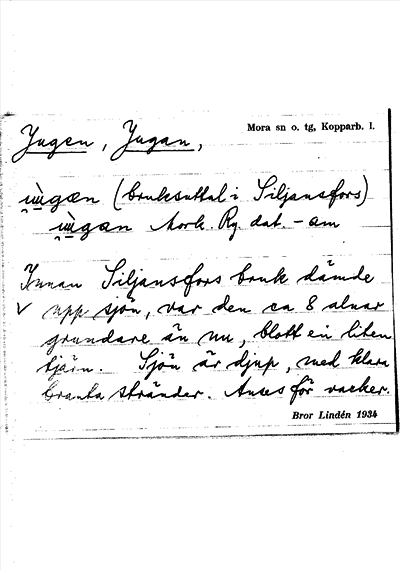 Jugen, Jugan,
Mora sn o. tg, Kopparb. l.
(bruksuttal i Siljansfors)
Mork. Ry. dat. - am
Innan Siljansfors bruk dämde
upp sjön, var den ca 8 alnar
grundare än nu, blott ein liten
tjärn. Sjön är djup, med klara
branta stränder. Anses för vacker.
Bror Lindén 1934